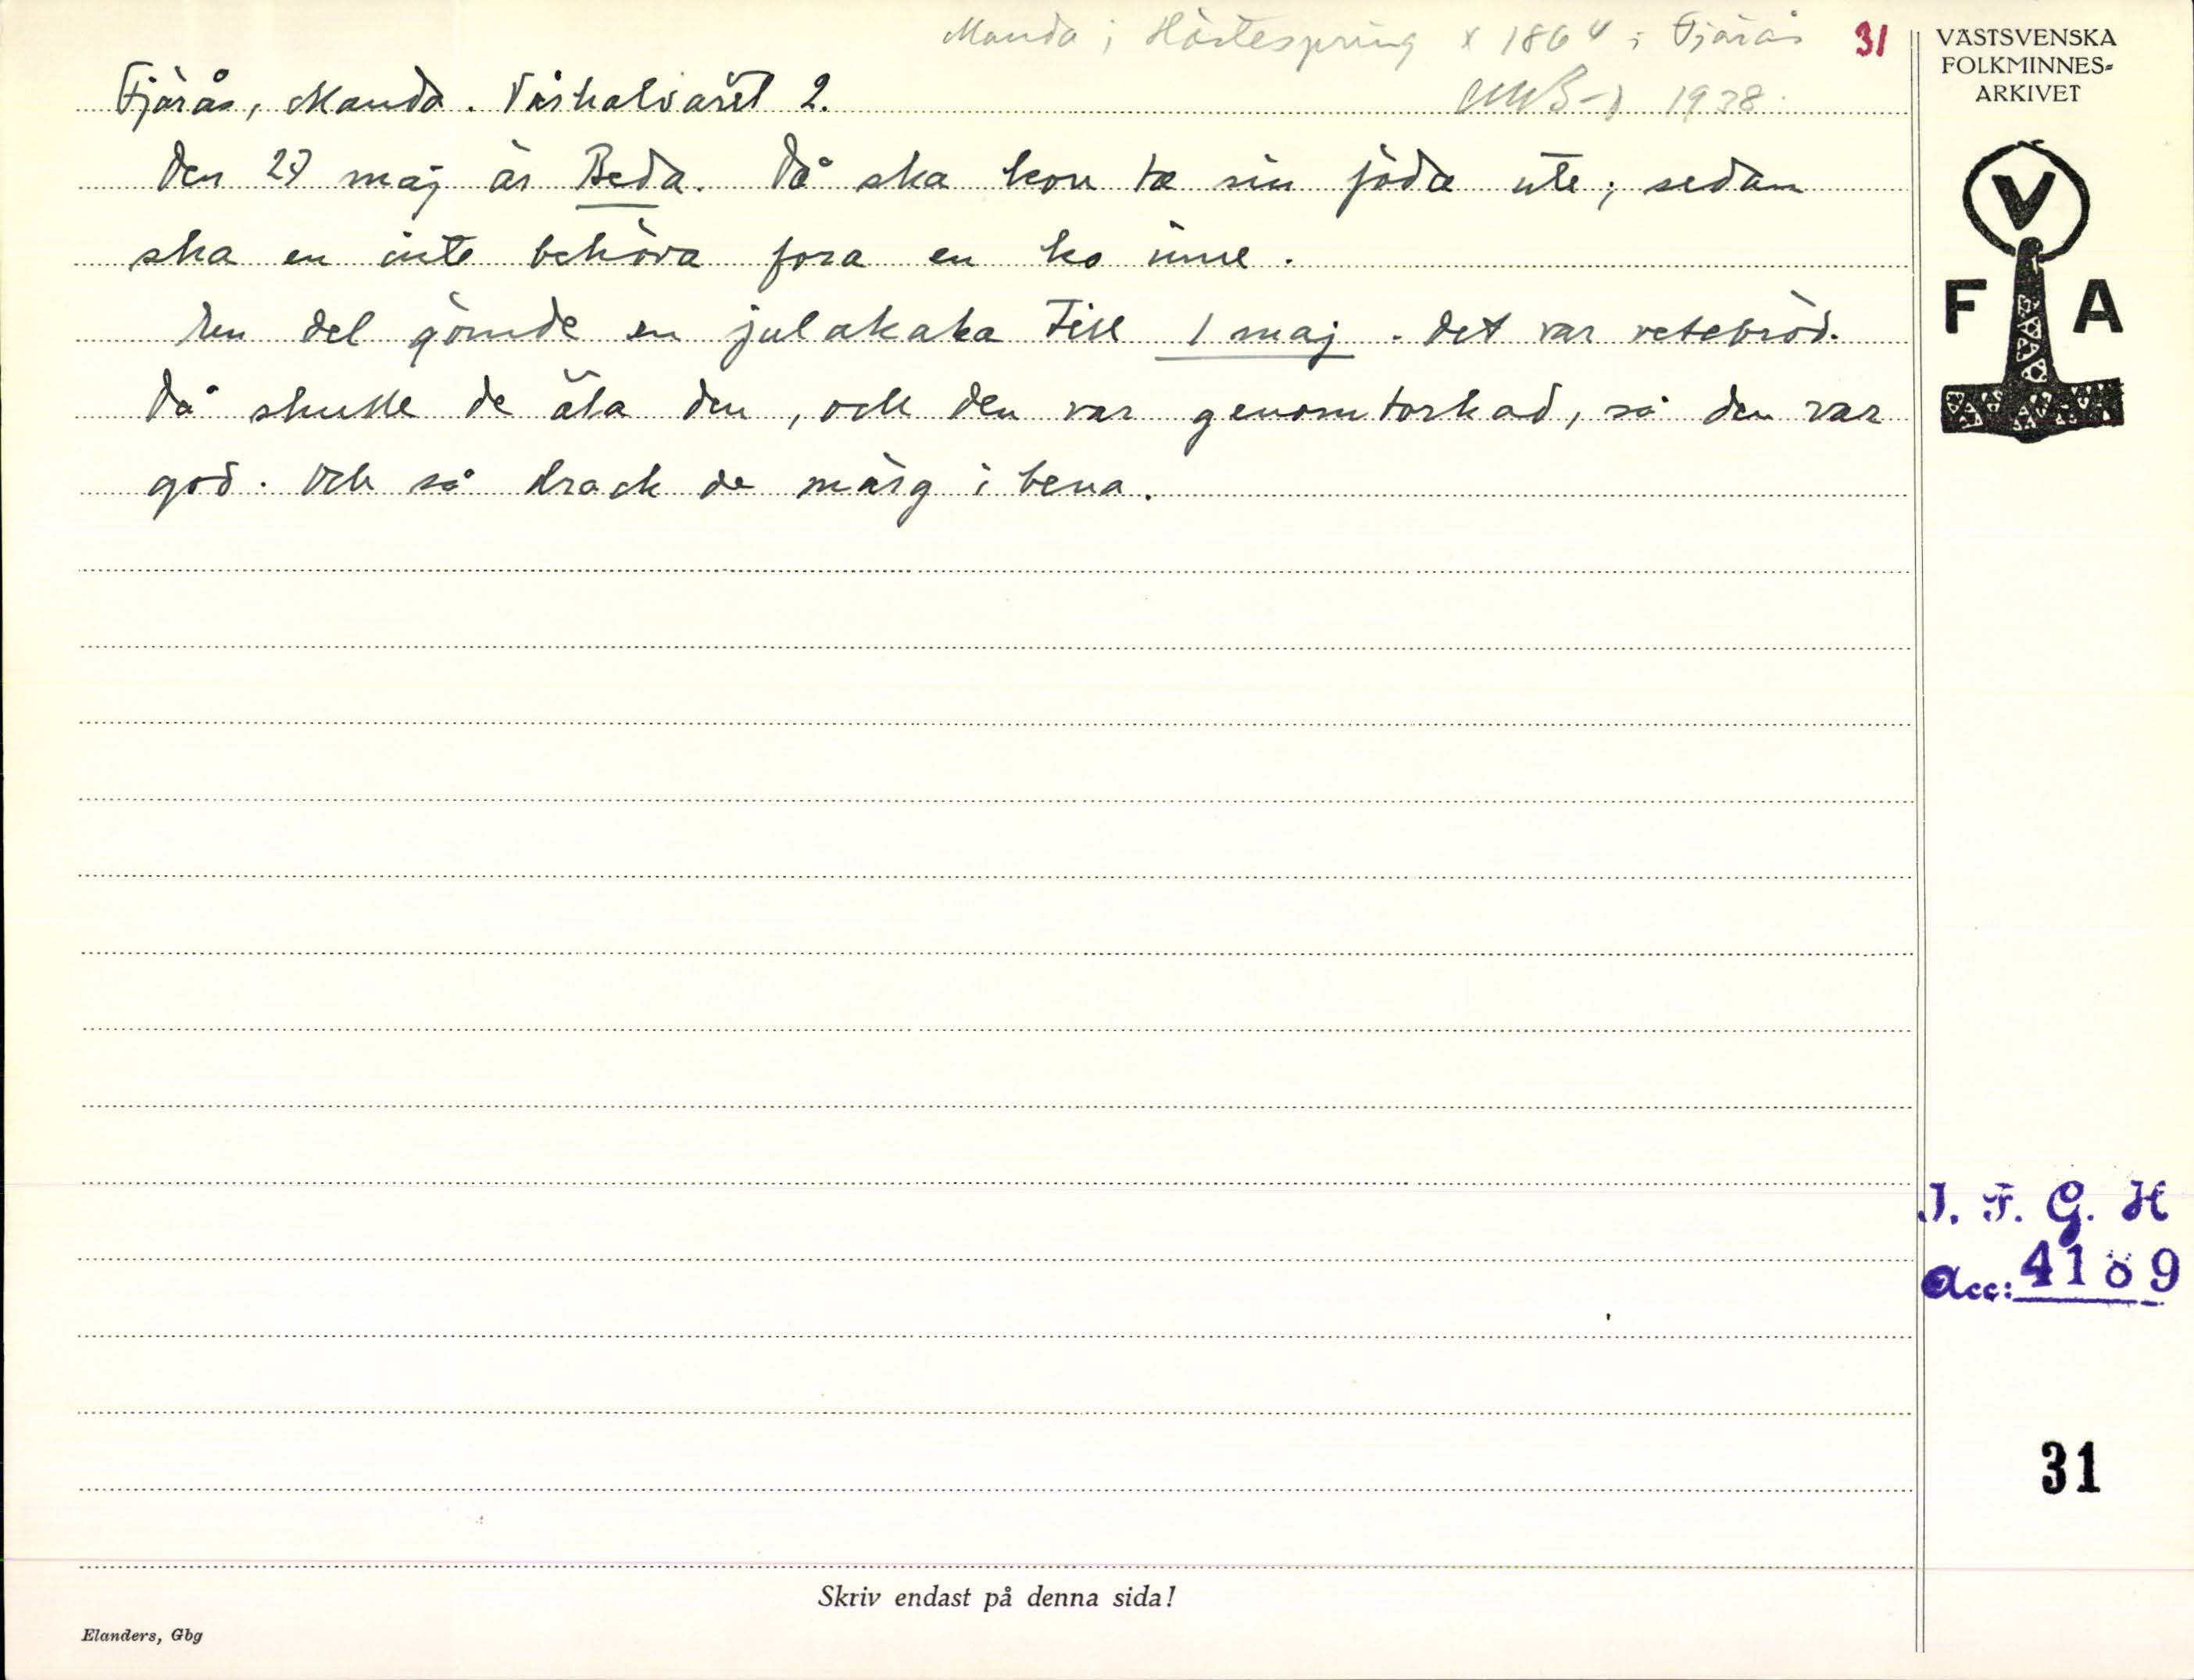 Manda i Hästespring x 1864 i Fjärås 31
Fjärås, Manda. Vårhalvåret 2.
1938.
Den 27 maj är Beda. Då ska kon ta sin föda ute; sedan
ska en inte behöva fora en ko inne.
En del gömde en julakaka till 1 maj. Det var vetebröd.
Då skulle de äta den, och den var genomtorkad, så den var
god. Och så drack de märg i bena.
VÄSTSVENSKA
FOLKMINNES-
ARKIVET
V
F A
I. F. G. H
Acc: 4189
31
Skriv endast på denna sida!
Elanders, Gbg